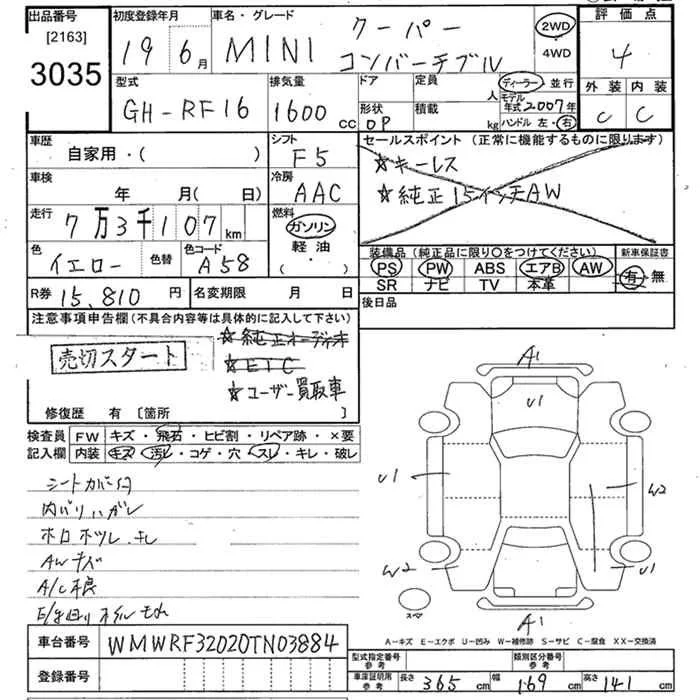 出品番号 初度登録年月 車名・グレード 評価点
[2163]
3035
19年6月 MINI クーパー コンバーチブル 2WD ・ 4WD 4
型式 排気量 ドア 定員 人 ディーラー・並行 外装 内装
GH-RF16 1600 CC 形状 OP 積載 kg モデル年式 2007年 C C
ハンドル 左・右
車歴 シフト セールスポイント (正常に機能するものに限ります)
自家用・( ) F5 ☆キーレス
車検 冷房 ☆純正15インチAW
年 月( 日) AAC
走行 燃料
7万3千107km ガソリン
軽油
・( )
色 色替 色コード 装備品 (純正品に限り○をつけてください) 新車保証書
イエロー A58 PS PW ABS エアB AW 有・無
SR ナビ TV 本革
R券 15,810円 名変期限 月 日 後日品
注意事項申告欄(不具合内容等は具体的に記入して下さい)
☆純正オーディオ
売切スタート ☆ETC
☆ユーザー買取車
修復歴 有 [箇所 ]
検査員 FW キズ・飛石・ヒビ割・リペア跡・×要
記入欄 内装 キズ・汚レ・コゲ・穴・スレ・キレ・破レ
シートカバー付
内バリハガレ
ホロホツレ、キレ
AWキズ
A/C不良
A1
U1
U1
W2
W2
U1
スペア
A1
A-キズ E-エクボ U-凹み W-補修跡 S-サビ C-腐食 XX-交換済
車台番号 WMWRF32020TN03884
登録番号
型式指定番号 参考 類別区分番号 参考
車庫証明用 参考 長さ 365 cm 幅 169 cm 高さ 141 cm